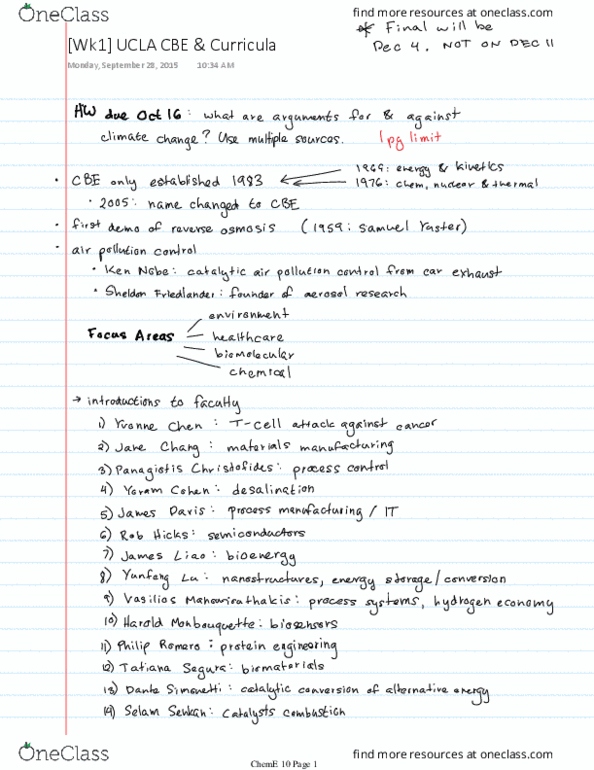 OneClass
find more resources at oneclass.com
* Final will be
Dec 4, NOT ON DEC 11
[Wk1] UCLA CBE & Curricula
Monday, September 28, 2015 10:34 AM
HW due Oct 16: what are arguments for & against
climate change? Use multiple sources. 1 pg limit
• CBE only established 1983
1969: energy & kinetics
1976: chem, nuclear & thermal
• 2005: name changed to CBE
• first demo of reverse osmosis (1959: Samuel Yuster)
• air pollution control
• Ken Nobe: catalytic air pollution control from car exhaust
• Sheldon Friedlander: founder of aerosol research
Focus Areas
environment
healthcare
biomolecular
chemical
→ introductions to faculty
1) Yvonne Chen: T-cell attack against cancer
2) Jane Chang: materials manufacturing
3) Panagiotis Christofides: process control
4) Yoram Cohen: desalination
5) James Davis: process manufacturing / IT
6) Rob Hicks: semiconductors
7) James Liao: bioenergy
8) Yunfeng Lu: nanostructures, energy storage/conversion
9) Vasilios Manousiouthakis: process systems, hydrogen economy
10) Harold Monbouquette: biosensors
11) Philip Romero: protein engineering
12) Tatiana Segura: biomaterials
13) Dante Simonetti: catalytic conversion of alternative energy
14) Selam Senkan: catalysts combustion
OneClass
find more resources at oneclass.com
ChemE 10 Page 1